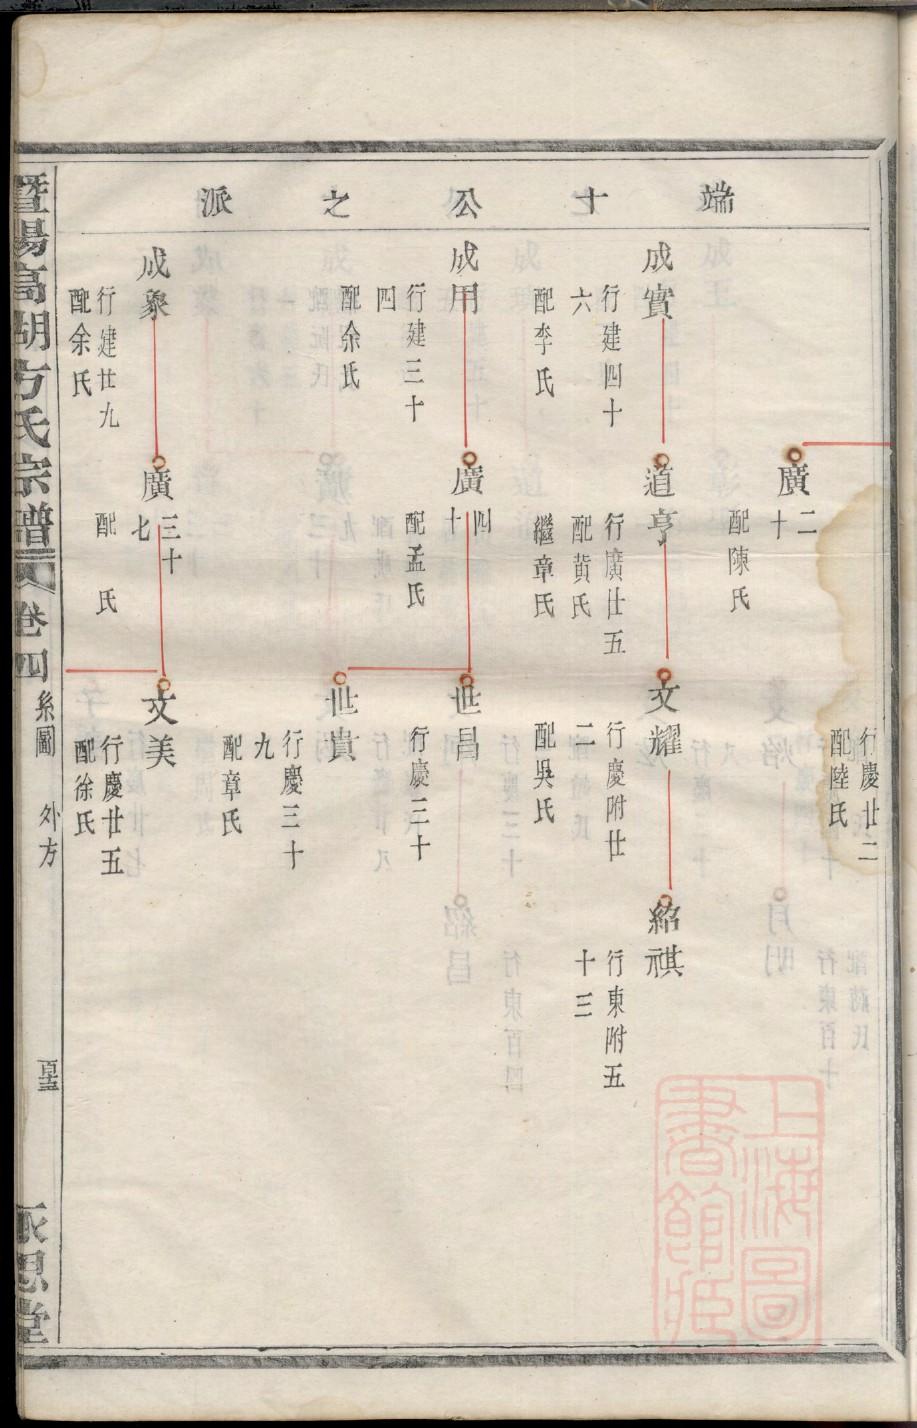 端十公之派
行慶廿二
配陸氏
廣二十
配陳氏
成實
行建四十六
配李氏
道亨
行廣廿五
配黃氏
繼章氏
文耀
行慶附廿二
配吳氏
紹祺
行東附五十三
成用
行建三十四
配余氏
廣四十
配孟氏
世昌
行慶三十
世貴
行慶三十九
配章氏
成象
行建廿九
配余氏
廣三十七
配 氏
文美
行慶廿五
配徐氏
暨陽高湖方氏宗譜
卷四
系圖 外方
永思堂
上海圖書館藏